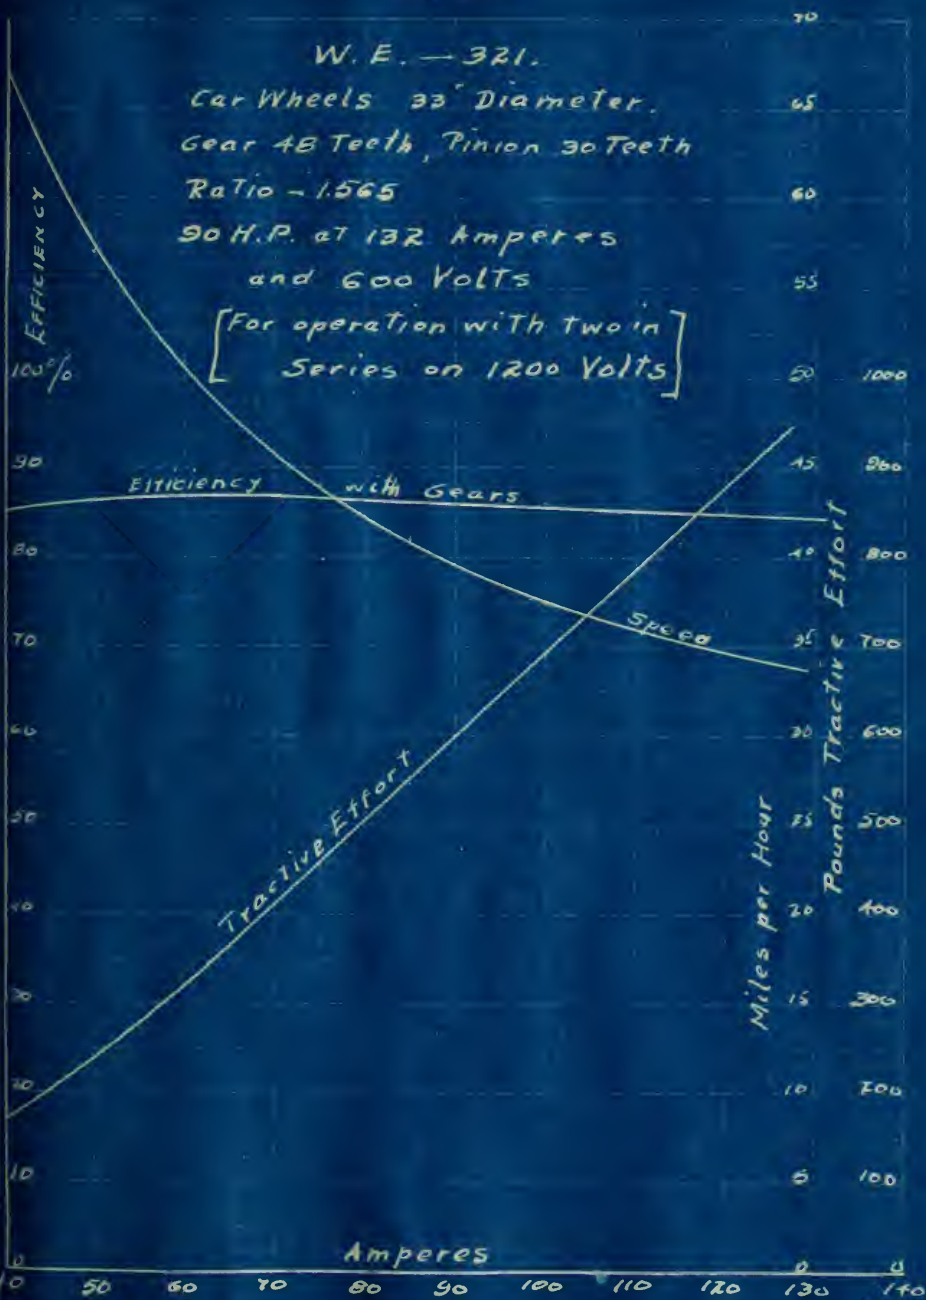 W. E. — 321.
Car Wheels 33" Diameter.
Gear 48 Teeth, Pinion 30 Teeth
Ratio - 1.565
90 H.P. at 132 Amperes
and 600 Volts
[For operation with two in
Series on 1200 Volts]
EFFICIENCY
100%
90
80
70
60
50
40
30
20
10
0
Efficiency with Gears
Speed
Tractive Effort
Miles per Hour
70
65
60
55
50
45
40
35
30
25
20
15
10
5
0
Pounds Tractive Effort
1000
900
800
700
600
500
400
300
200
100
0
Amperes
0 50 60 70 80 90 100 110 120 130 140